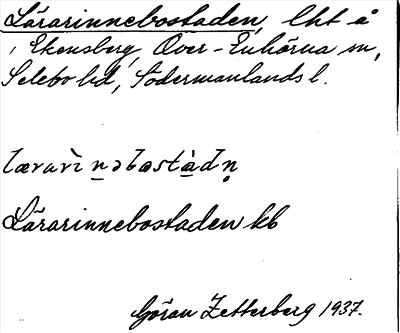 Lärarinnebostaden, lht å
, Ekensberg, Över-Enhörna sn,
Selebo hd, Södermanlands l.
Lärarinnebostaden kb
Göran Zetterberg 1937.